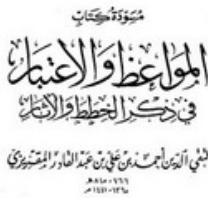 مسودة كتاب
المواعظ والاعتبار
في ذكر الخطط والآثار
لتقي الدين أحمد بن علي بن عبد القادر المقريزي
٧٦٦ - ٨٤٥هـ
١٣٦٥ - ١٤٤١م